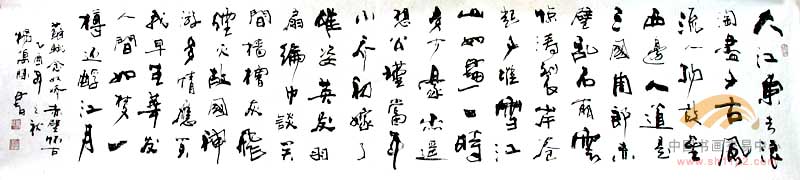 大江東去浪
淘盡千古風
流人物故壘
西邊人道是
三國周郎赤
壁乱石崩雲
惊濤裂岸卷
起千堆雪江
山如畫一時
多少豪杰遥
想公瑾當年
小乔初嫁了
雄姿英发羽
扇綸巾談笑
間檣櫓灰飛
煙灭故國神
游多情應笑
我早生華发
人間如梦一
樽还酹江月
蘇軾念奴娇赤壁怀古
乙酉年之秋
中国书画交易中心